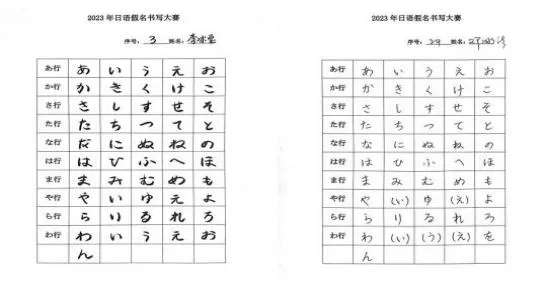 2023 年日语假名书写大赛
序号: 3 姓名:
あ行 あ い う え お
か行 か き く け こ
さ行 さ し す せ そ
た行 た ち つ て と
な行 な に ぬ ね の
は行 は ひ ふ へ ほ
ま行 ま み む め も
や行 や い ゆ え よ
ら行 ら り る れ ろ
わ行 わ い う え お
ん
2023 年日语假名书写大赛
序号: 29 姓名:
あ行 あ い う え お
か行 か き く け こ
さ行 さ し す せ そ
た行 た ち つ て と
な行 な に ぬ ね の
は行 は ひ ふ へ ほ
ま行 ま み む め も
や行 や (い) ゆ (え) よ
ら行 ら り る れ ろ
わ行 わ (い) (う) (え) を
ん